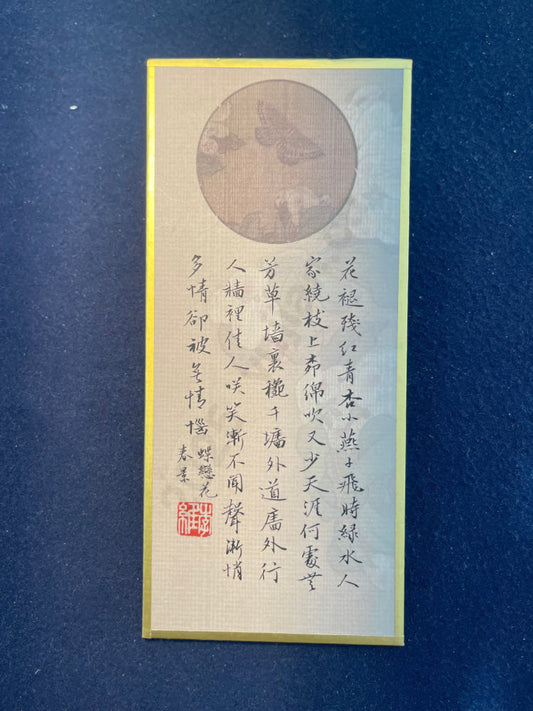 花褪残红青杏小燕子飛時緑水人
家繞枝上柳綿吹又少天涯何處無
芳草墙裏鞦千墻外道墻外行
人牆裡佳人咲笑漸不闻聲漸悄
多情卻被無情惱
蝶戀花
春景